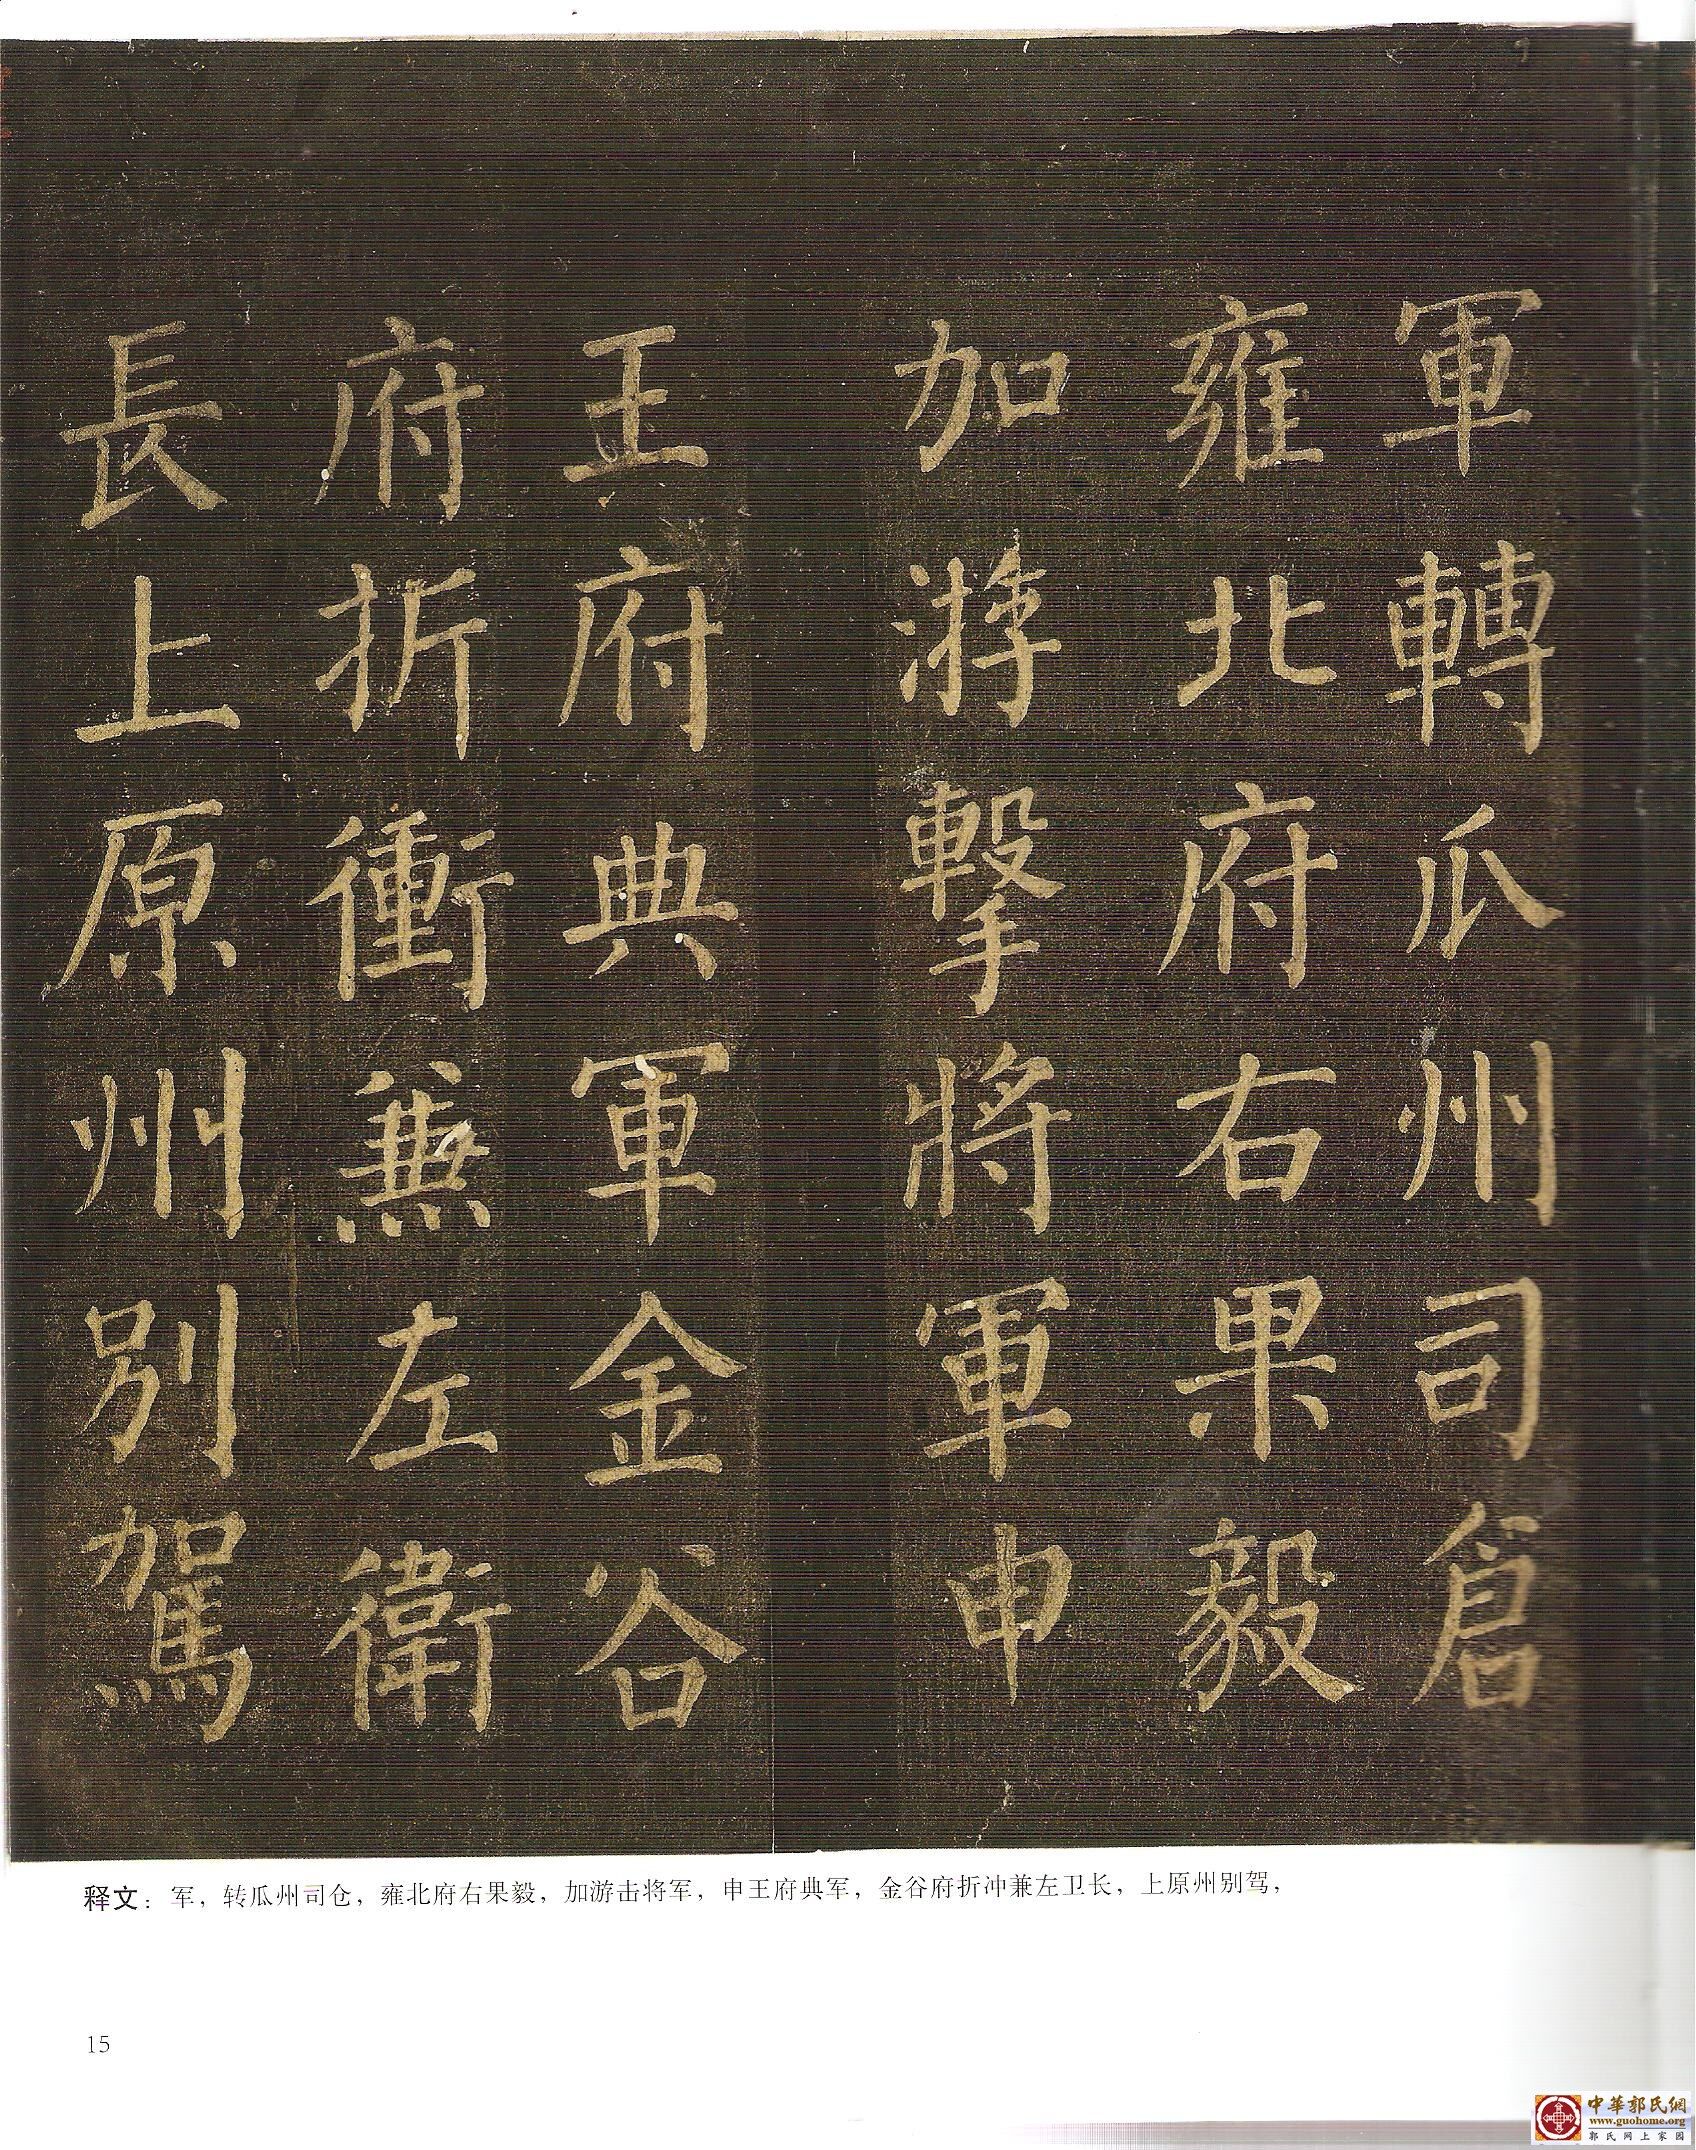 軍轉瓜州司倉
雍北府右果毅
加游擊將軍申
王府典軍金谷
府折衝兼左衛
長上原州別駕
释文：军，转瓜州司仓，雍北府右果毅，加游击将军，申王府典军，金谷府折冲兼左卫长，上原州别驾，
15
中華郭氏網
www.guohome.org
郭氏网上家园